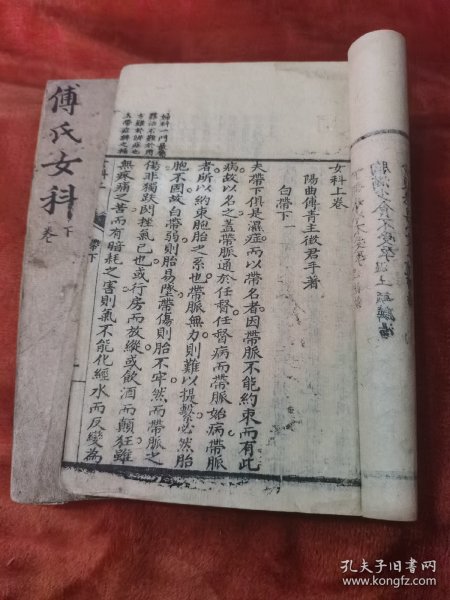 女科上卷
陽曲傅青主徵君手著
白帶下一
夫帶下俱是濕症而以帶名者因帶脈不能約束而有此
病故以名之蓋帶脈通於任督任督病而帶脈始病帶脈
者所以約束胞胎之系也帶脈無力則難以提繫必然胎
胞不固故白帶弱則胎易墜帶傷則胎不牢然而帶脈之
傷非獨跌閃挫氣已也或行房而放縱或飲酒而顛狂雖
無疼痛之苦而有暗耗之害則氣不能化經水而反變為
婦科一門最屬
難治不難於用
方難於辨症也
五帶症辨之極
帶下
傅氏女科下卷
孔夫子旧书网
www.kongfz.com